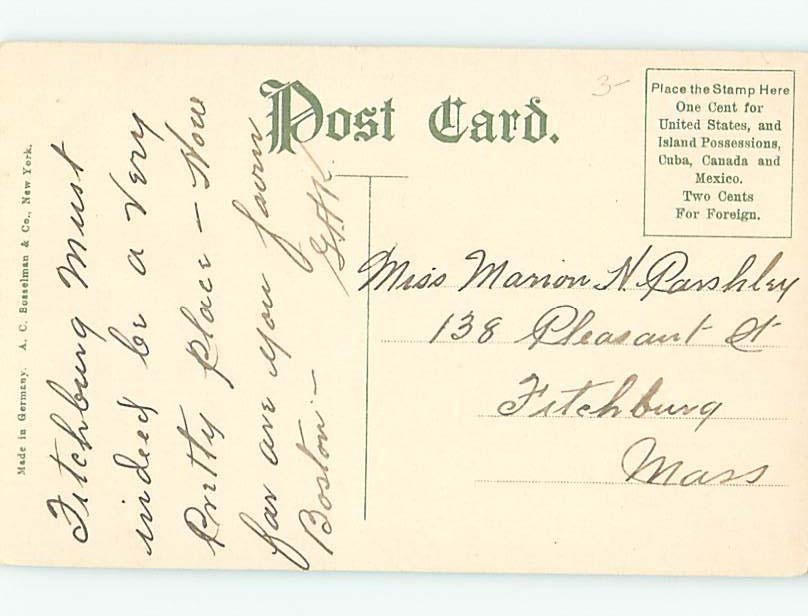 Post Card.
3-
Place the Stamp Here
One Cent for
United States, and
Island Possessions,
Cuba, Canada and
Mexico.
Two Cents
For Foreign.
Made in Germany. A. C. Bosselman & Co., New York.
Fitchburg Must
indeed be a very
Pretty place - How
far are you from
Boston -
Miss Marion N. Parshley
138 Pleasant St
Fitchburg
Mass